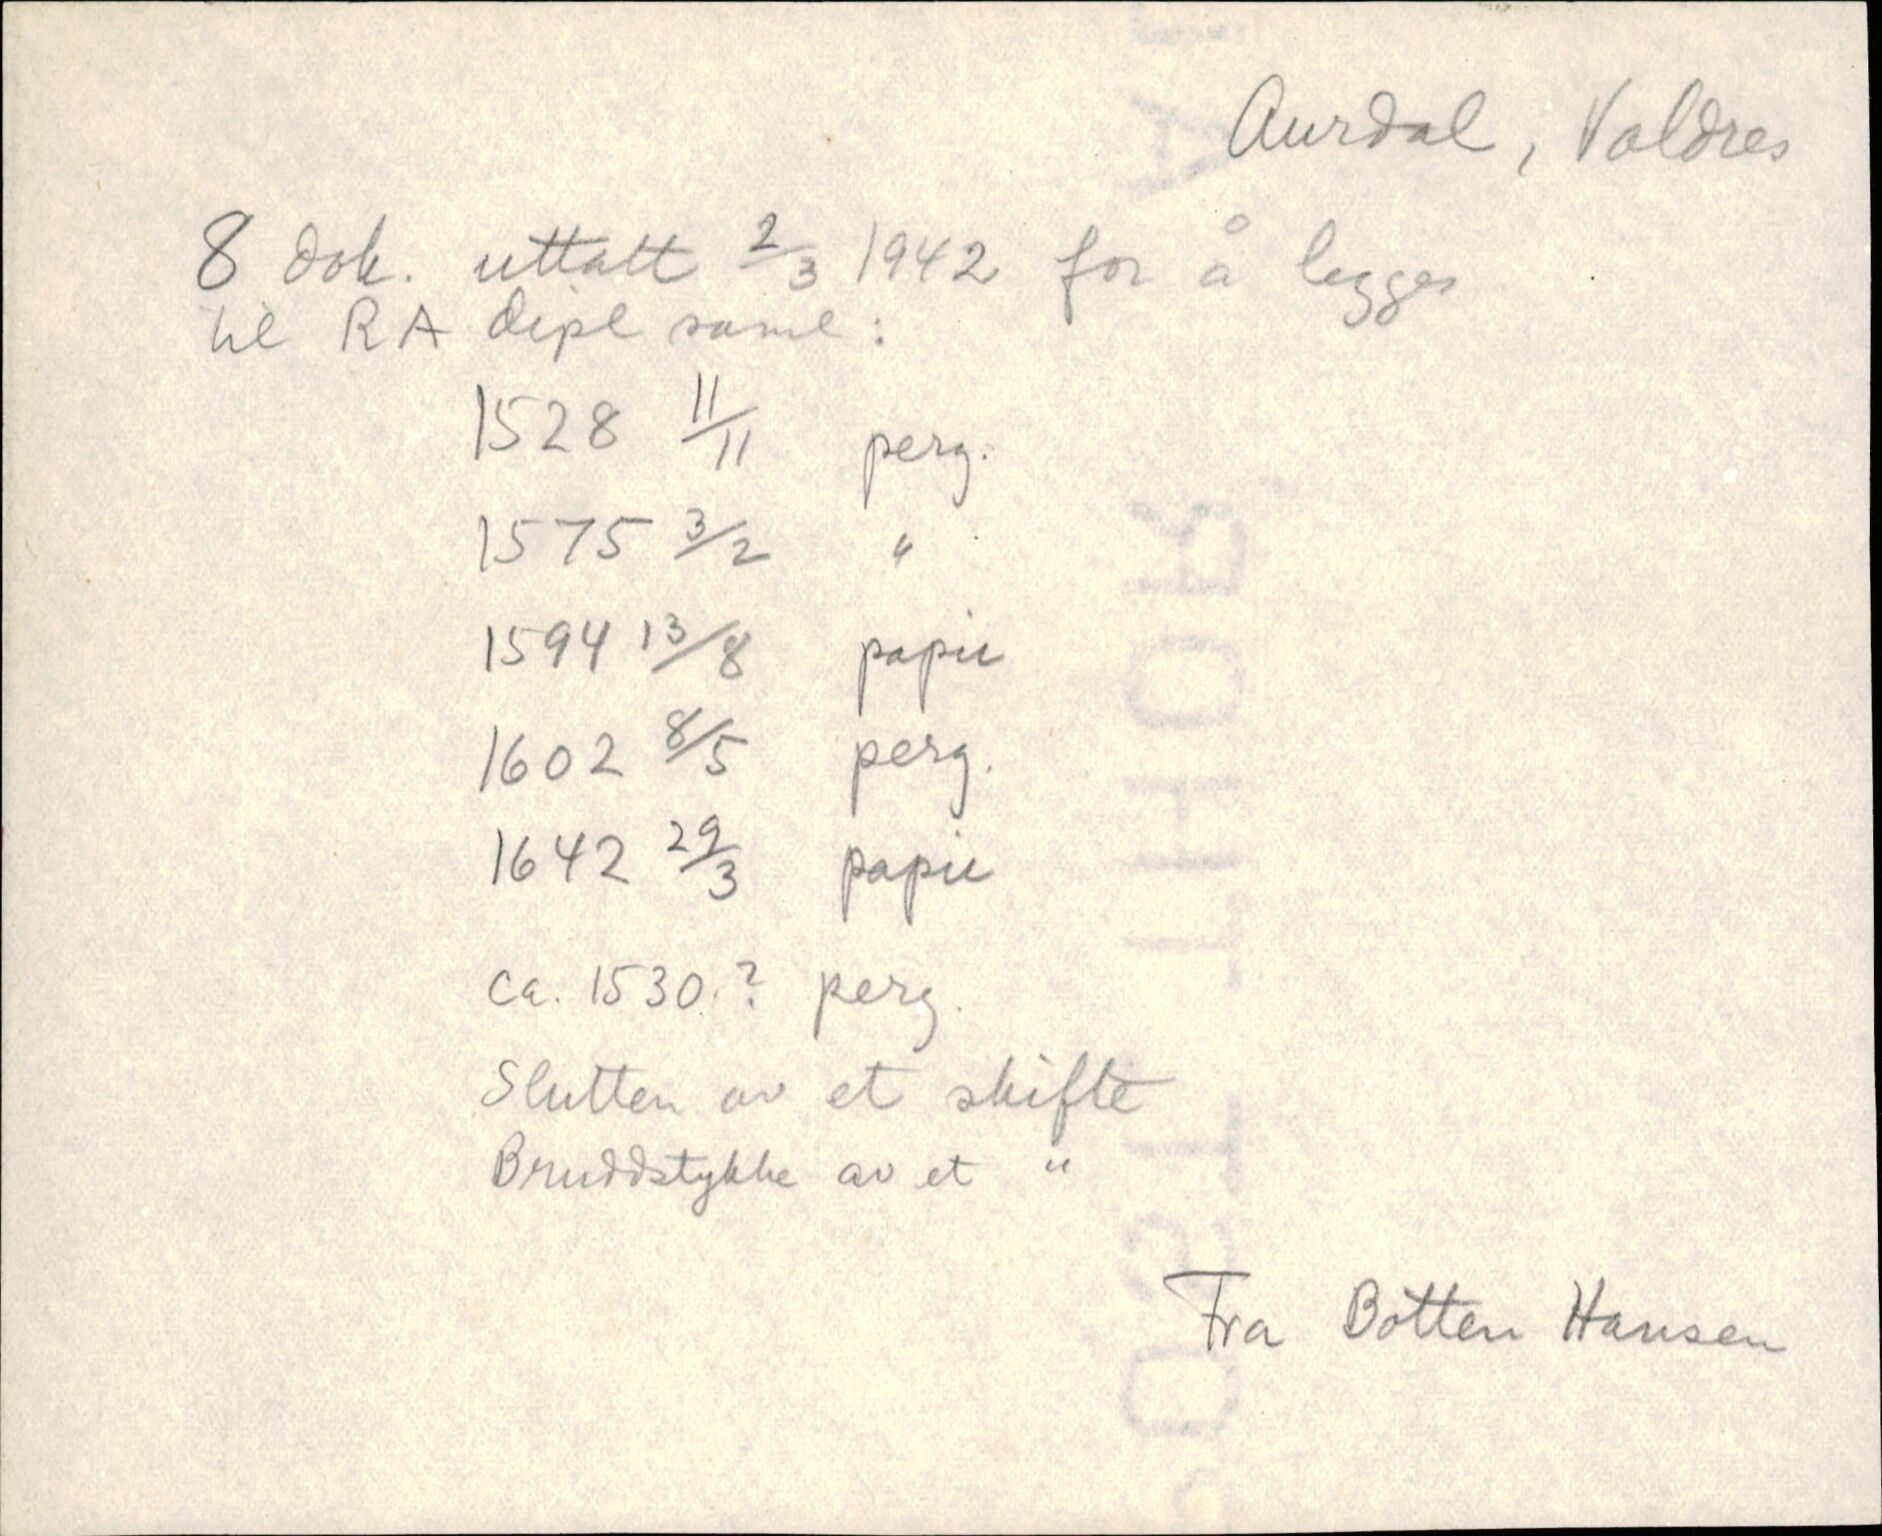 Aurdal, Valdres
8 dok. uttatt 2/3 1942 for å legges
til RA dipl saml:
1528 11/11 perg.
1575 3/2 "
1594 13/8 papir
1602 8/5 perg.
1642 29/3 papir
ca. 1530.? perg.
Slutten av et skifte
Bruddstykke av et "
Fra Botten Hansen